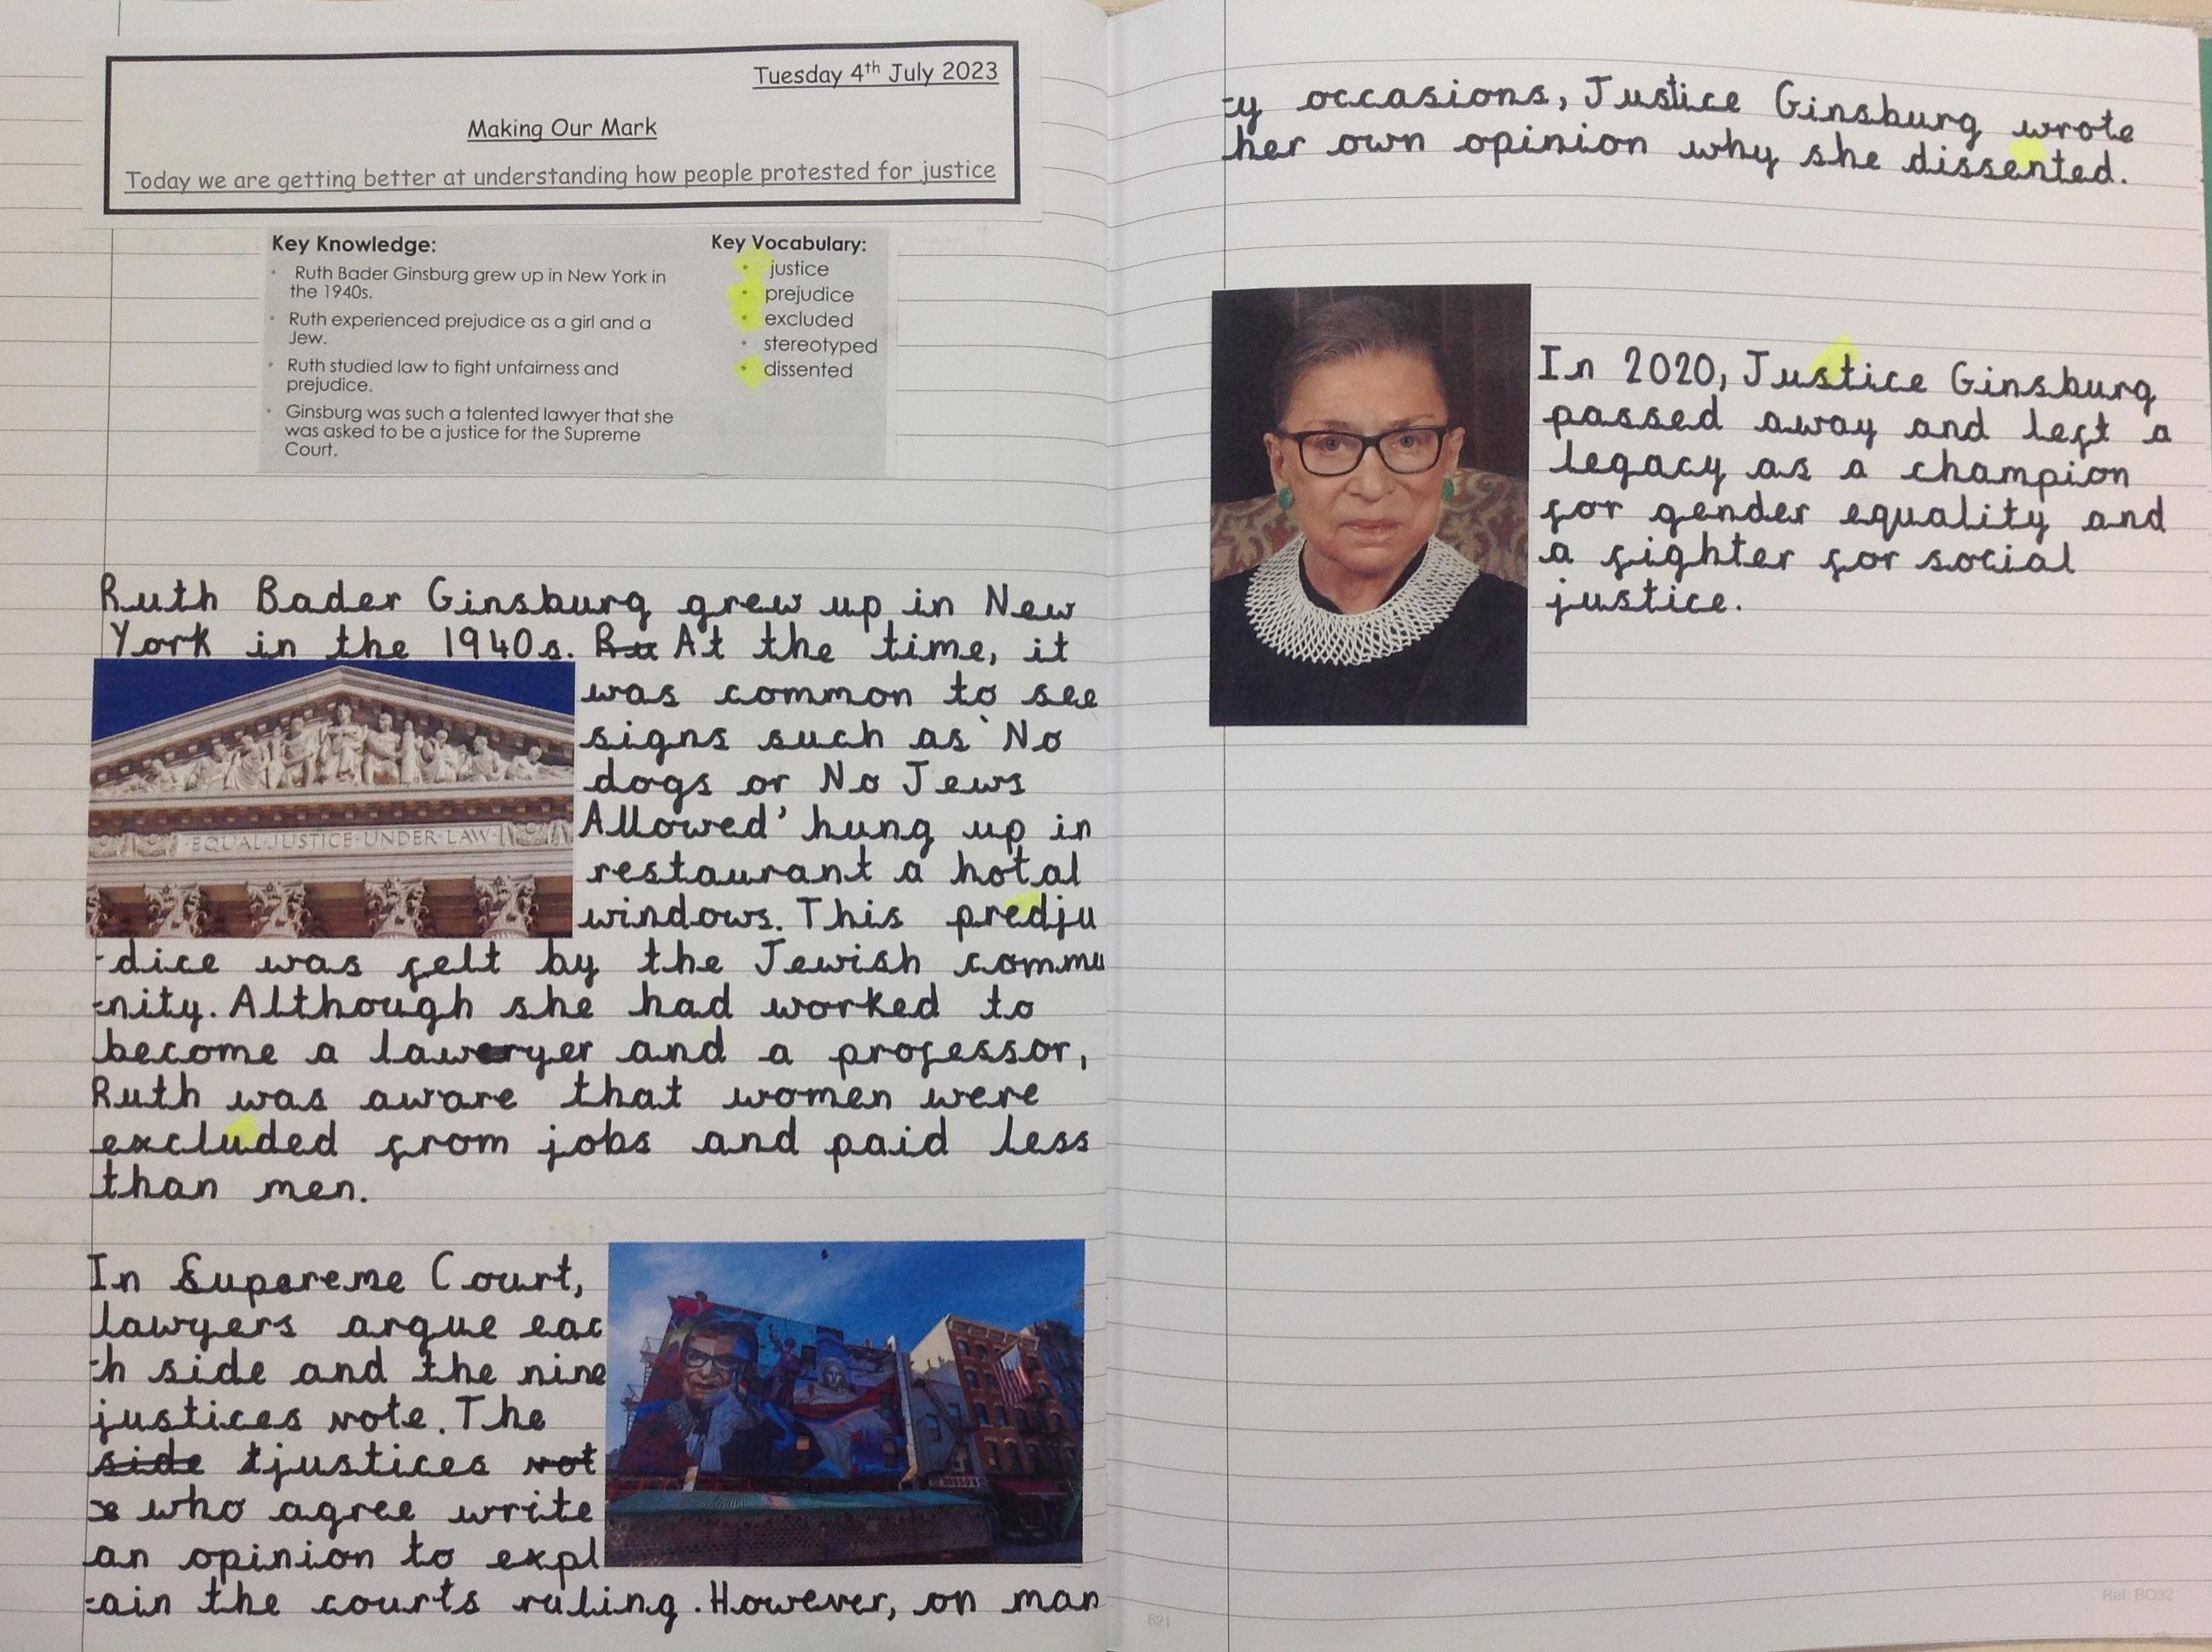 Tuesday 4th July 2023
Making Our Mark
Today we are getting better at understanding how people protested for justice
Key Knowledge:
• Ruth Bader Ginsburg grew up in New York in
the 1940s.
• Ruth experienced prejudice as a girl and a
Jew.
• Ruth studied law to fight unfairness and
prejudice.
• Ginsburg was such a talented lawyer that she
was asked to be a justice for the Supreme
Court.
Key Vocabulary:
• justice
• prejudice
• excluded
• stereotyped
• dissented
Ruth Bader Ginsburg grew up in New
York in the 1940s. At the time, it
was common to see
signs such as 'No
dogs or No Jews
Allowed' hung up in
restaurant a hotal
windows. This predju
-dice was felt by the Jewish commu
-nity. Although she had worked to
become a lawyer and a professor,
Ruth was aware that women were
excluded from jobs and paid less
than men.
EQUAL·JUSTICE·UNDER·LAW
In Supereme Court,
lawyers argue eac
-h side and the nine
justices vote. The
side justices vot
e who agree write
an opinion to expl
-ain the courts ruling. However, on man
-y occasions, Justice Ginsburg wrote
her own opinion why she dissented.
In 2020, Justice Ginsburg
passed away and left a
legacy as a champion
for gender equality and
a fighter for social
justice.
621
Ref: BO32